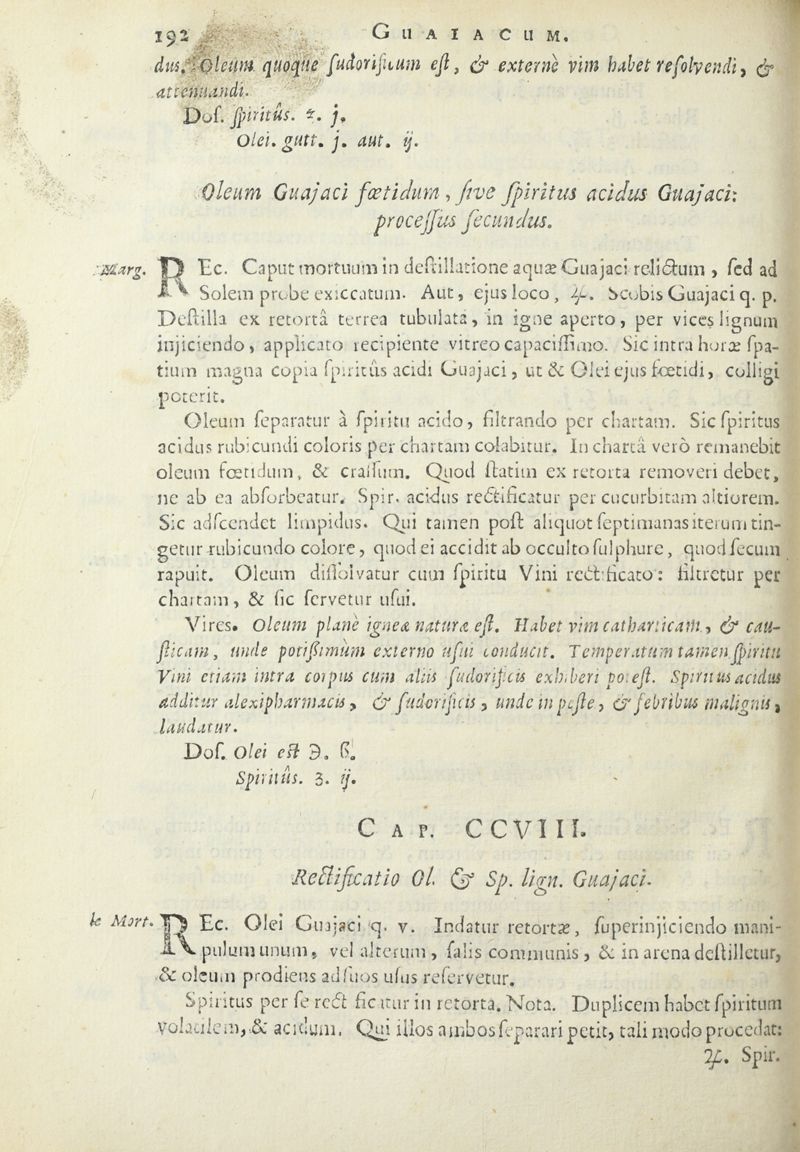 192 GUAIACUM.
dus. Oleum quoque ſudorificum eſt, & externè vim habet reſolvendi, &
attenuandi.
Doſ. ſpiritûs. j.
Olei. gutt. j. aut. ij.
Oleum Guajaci fœtidum, ſive ſpiritus acidus Guajaci:
proceſſus ſecundus.
Marg. REc. Caput mortuum in deſtillatione aquæ Guajaci relictum, ſed ad
Solem probe exiccatum. Aut, ejus loco, ♃. Scobis Guajaci q. p.
Deſtilla ex retortâ terrea tubulatâ, in igne aperto, per vices lignum
injiciendo, applicato recipiente vitreo capaciſſimo. Sic intra horæ ſpa-
tium magna copia ſpiritûs acidi Guajaci, ut & Olei ejus fœtidi, colligi
poterit.
Oleum ſeparatur à ſpiritu acido, filtrando per chartam. Sic ſpiritus
acidus rubicundi coloris per chartam colabitur. In chartâ verò remanebit
oleum fœtidum, & craſſum. Quod ſtatim ex retorta removeri debet,
ne ab ea abſorbeatur. Spir. acidus rectificatur per cucurbitam altiorem.
Sic adſcendet limpidus. Qui tamen poſt aliquot ſeptimanas iterum tin-
getur rubicundo colore, quod ei accidit ab occulto ſulphure, quod ſecum
rapuit. Oleum diſſolvatur cum ſpiritu Vini rectificato: filtretur per
chartam, & ſic ſervetur uſui.
Vires. Oleum planè igneæ naturæ eſt. Habet vim catharticam, & cau-
ſticam, unde potiſſimùm externo uſui conducit. Temperatum tamen ſpiritu
Vini etiam intra corpus cum aliis ſudorificis exhiberi poteſt. Spiritus acidus
additur alexipharmacis, & ſudorificis, unde in peſte, & febribus malignis,
laudatur.
Doſ. Olei eſt ℈. ß.
Spiritûs. ʒ. ij.
CAP. CCVIII.
Rectificatio Ol. & Sp. lign. Guajaci.
le Mort. REc. Olei Guajaci q. v. Indatur retortæ, ſuperinjiciendo mani-
pulum unum, vel alterum, ſalis communis, & in arena deſtilletur,
& oleum prodiens ad ſuos uſus reſervetur.
Spiritus per ſe rectificatur in retorta. Nota. Duplicem habet ſpiritum
volatilem, & acidum. Qui illos ambos ſeparari petit, tali modo procedat:
♃. Spir.